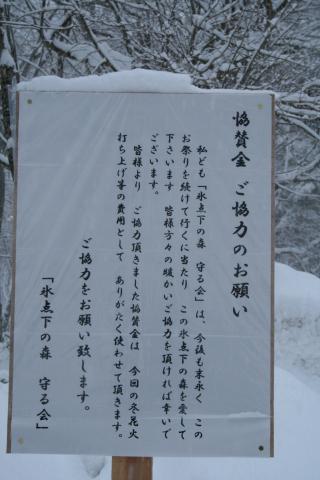 協賛金 ご協力のお願い
私ども「氷点下の森 守る会」は、今後も末永く この
お祭りを続けて行くに当たり この氷点下の森を愛して
下さいます 皆様方々の暖かいご協力を頂ければ幸いで
ございます。
皆様より ご協力頂きました協賛金は 今回の冬花火
打ち上げ等の費用として ありがたく使わせて頂きます。
ご協力をお願い致します。
「氷点下の森 守る会」